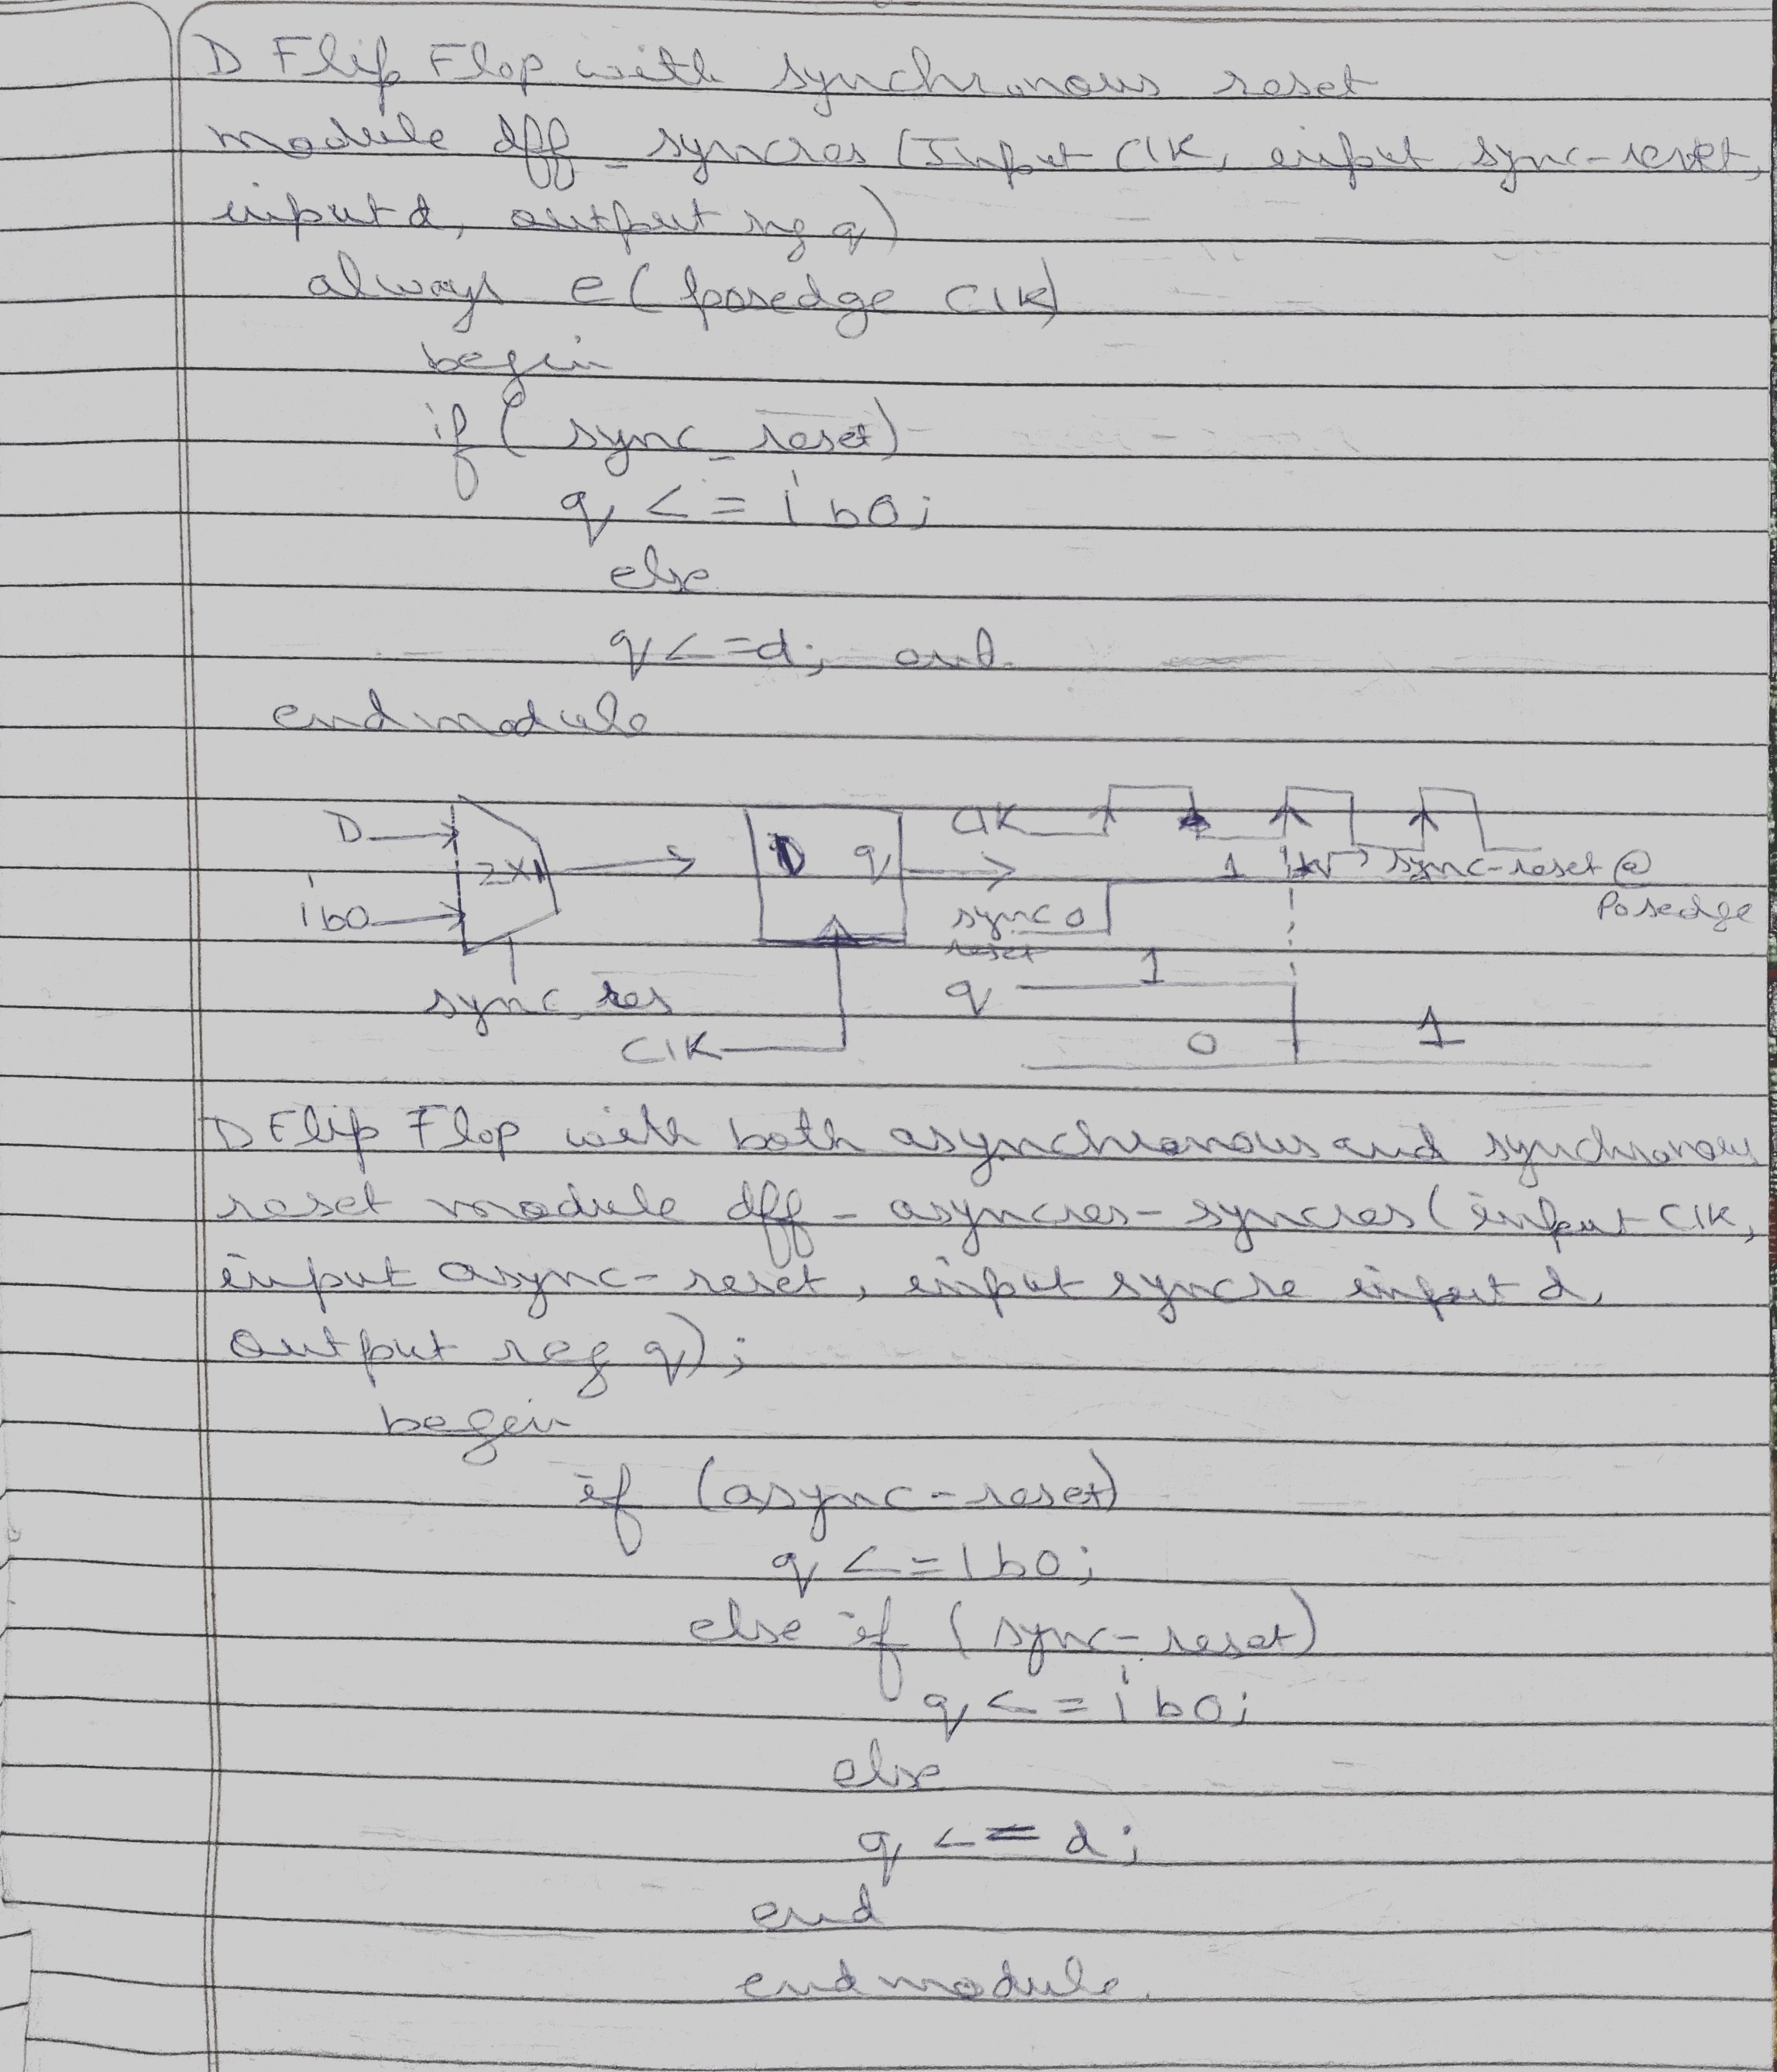 D Flip Flop with synchronous reset
module dff_syncres (Input Clk, input sync-reset,
input d, output reg q)
always @ (posedge Clk)
begin
if (sync_reset)
q <= 1'b0;
else
q <= d; end
endmodule
D
2x1
1'b0
sync_res
Clk
D q
Clk
1
sync-reset @
Posedge
sync 0
reset
q 1
0 1
D Flip Flop with both asynchronous and synchronous
reset module dff - asyncres-syncres (input Clk,
input async-reset, input syncre input d,
Output reg q);
begin
if (async-reset)
q <= 1b0;
else if (sync-reset)
q <= 1'b0;
else
q <= d;
end
endmodule.